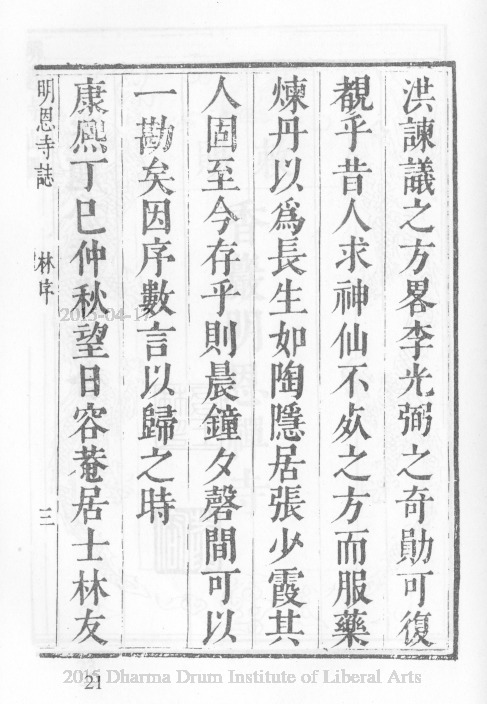 洪諫議之方畧李光弼之奇勛可復
覩乎昔人求神仙不𣦸之方而服藥
煉丹以爲長生如陶隱居張少霞其
人固至今存乎則晨鐘夕磬間可以
一勘矣因序數言以歸之時
康熈丁巳仲秋望日容菴居士林友
明恩寺誌 林序 三
2015-04-17
2015 Dharma Drum Institute of Liberal Arts
21